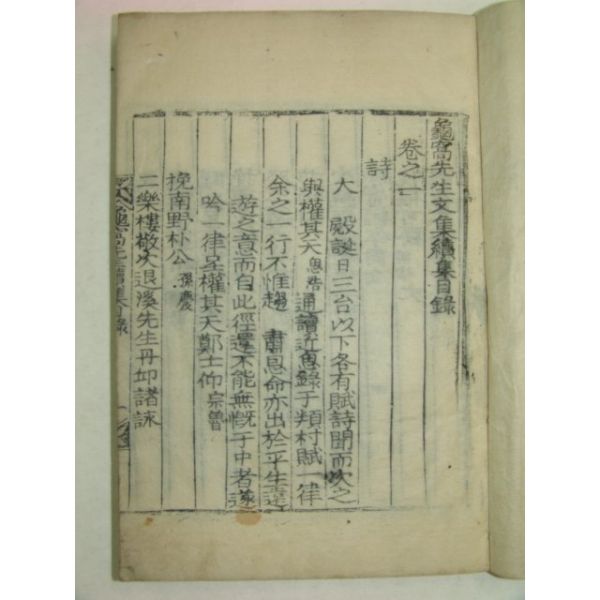 龜窩先生文集續集目錄
卷之一
詩
大 殿誕日三台以下各有賦詩聞而次之
與權其天思浩通讀近思錄于頖村賦一律
余之一行不惟趨 肅恩命亦出於平生遠
遊之意而自此徑還不能無慨于中者遂
吟一律呈權其天鄭士仰宗魯
挽南野朴公孫慶
二樂樓敬次退溪先生丹邱諸詠
龜窩先生續集目錄 一